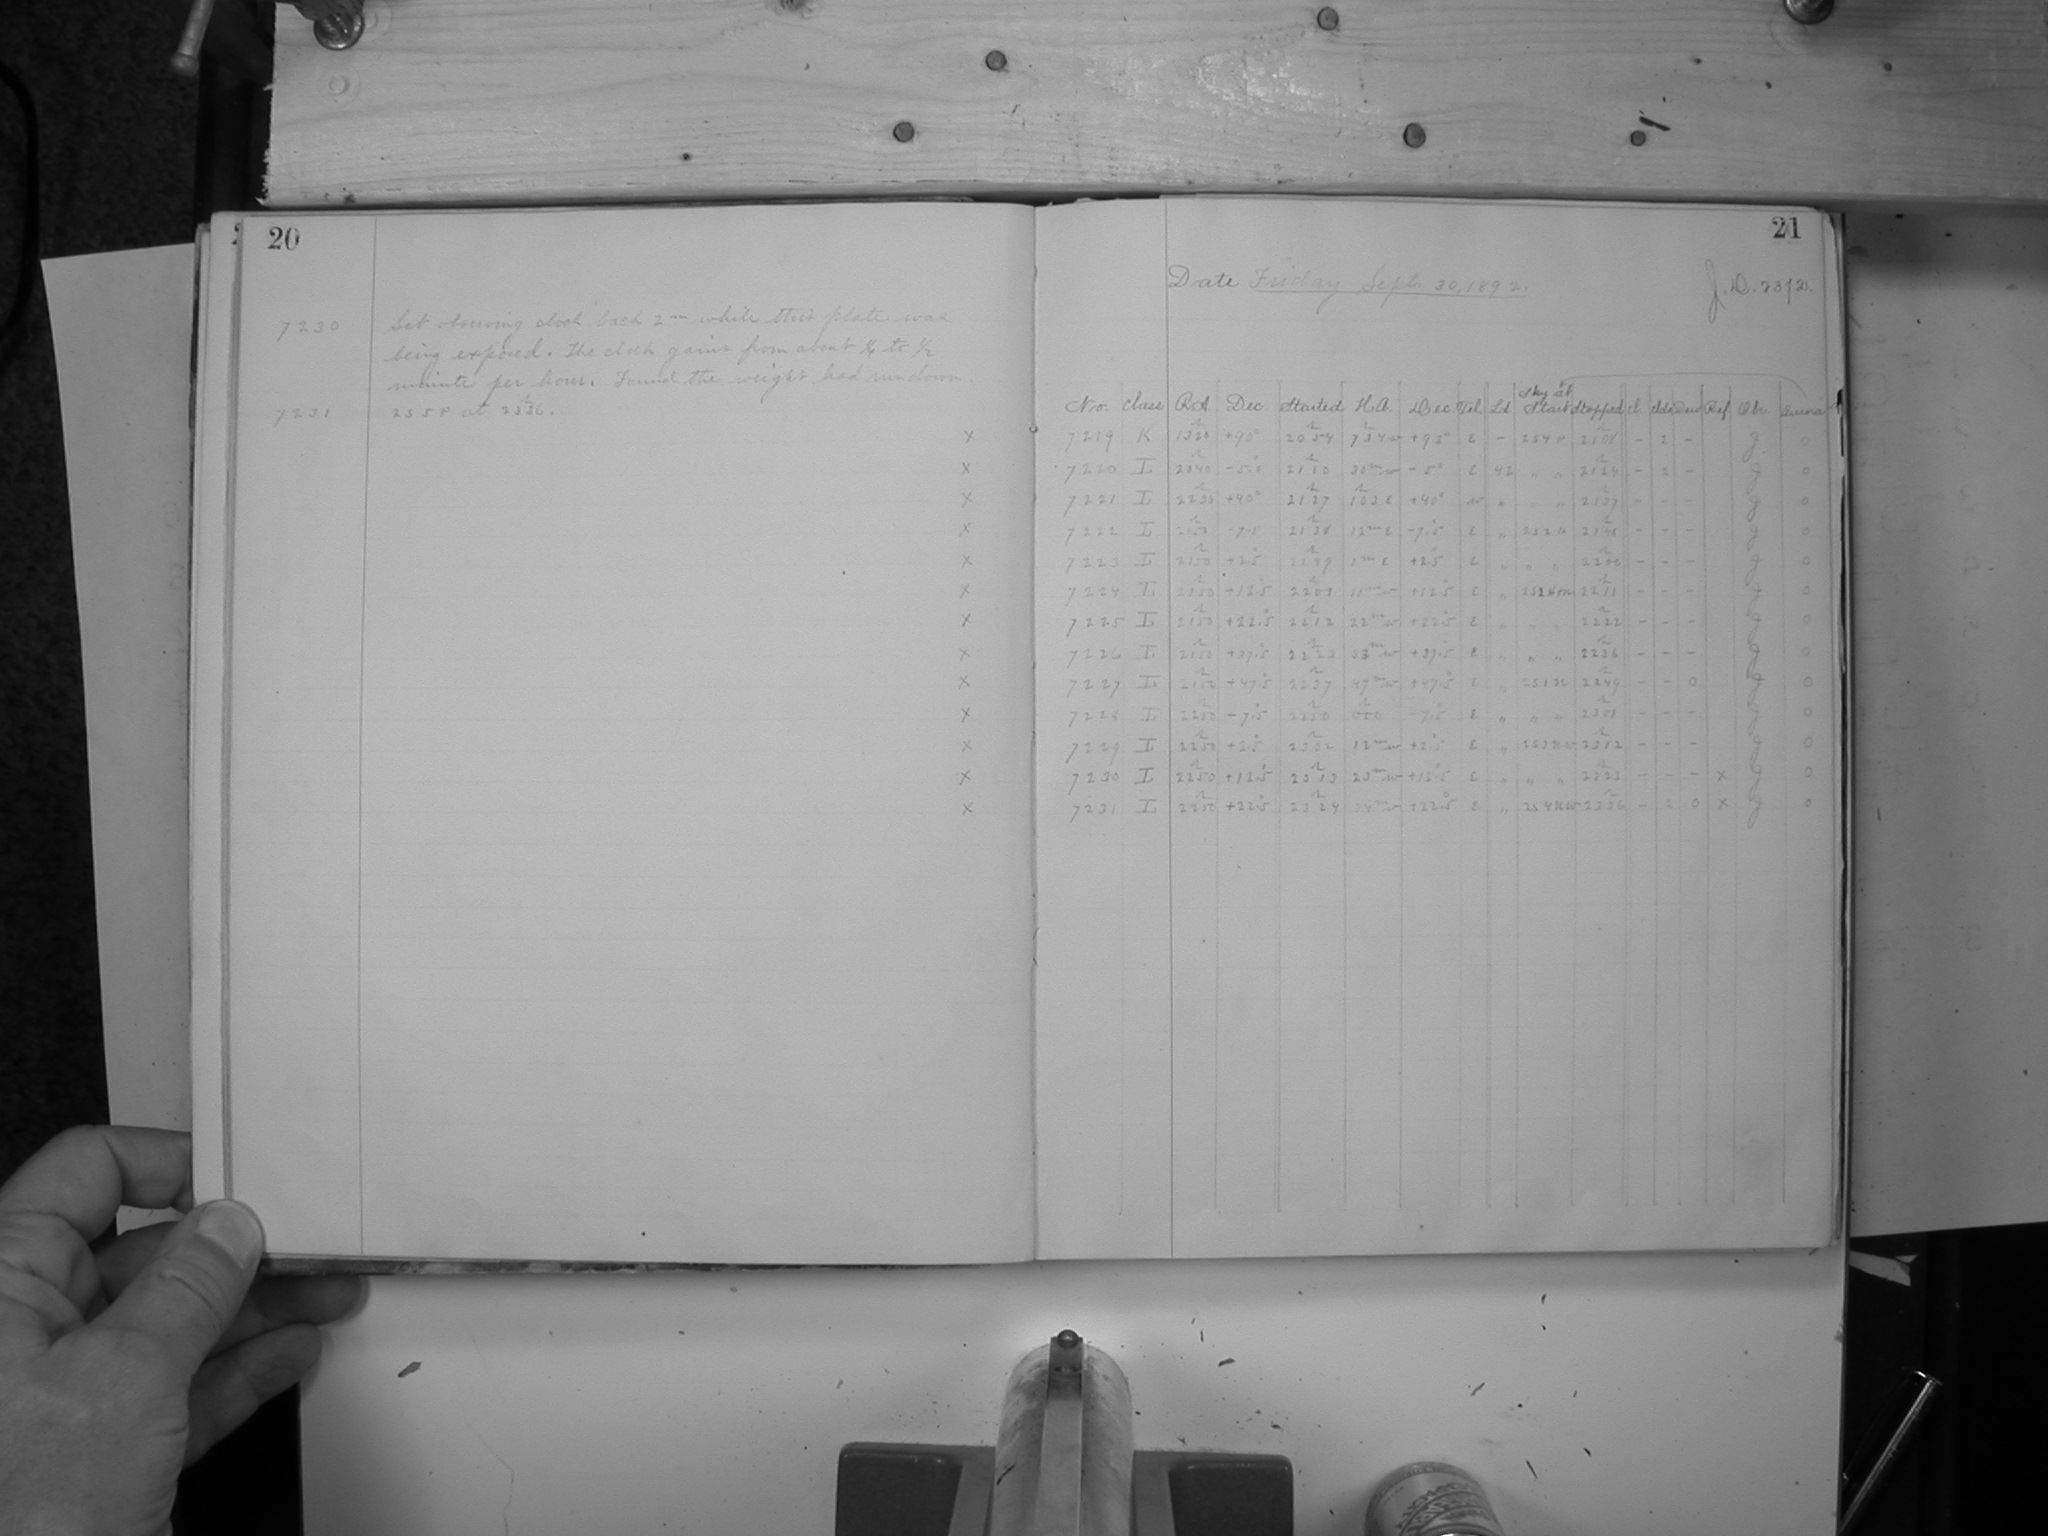 20
7230 Set observing clock back 2m while this plate was
being exposed. The clock gains from about 1/4 to 1/2
minute per hour. Found the weight had rundown.
7231 235P at 23h36.
21
Date Friday Sept. 30, 1892.
No. Class R.A. Dec. Started H.A. Dec. Tel. Sky at Start Stopped Cl. Ref. Obs.
x 7219 K 1320 +90° 2054 7h34w +90° E - 234P 2108 - 2 - J. 0
x 7220 I 2040 -5.0 2110 30mw -5° E 42 " " 2124 - 2 - J 0
x 7221 I 2230 +40° 2127 1h03E +40° w " " " 2137 - - - J 0
x 7222 I 2150 -7.5 2138 12mE -7.5 E " 2148 - - - J 0
x 7223 I 2150 +2.5 2149 1mE +2.5 E " " " 2200 - - - J 0
x 7224 I 2150 +12.5 2201 11mw +12.5 E " 2211 - - - J 0
x 7225 I 2150 +22.5 2212 22mw +22.5 E " " " 2222 - - - J 0
x 7226 I 2150 +37.5 2223 33mw +37.5 E " " " 2236 - - - J 0
x 7227 I 2150 +47.5 2237 47mw +47.5 E " 2249 - - 0 J 0
x 7228 I 2250 -7.5 2250 0h0 -7.5 E " " " 2301 - - - J 0
x 7229 I 2250 +2.5 2302 12mw +2.5 E " 2312 - - - J 0
x 7230 I 2250 +12.5 2313 23mw +12.5 E " " " 2323 - - - x J 0
x 7231 I 2250 +22.5 2324 34mw +22.5 E " 2336 - 2 0 x J 0